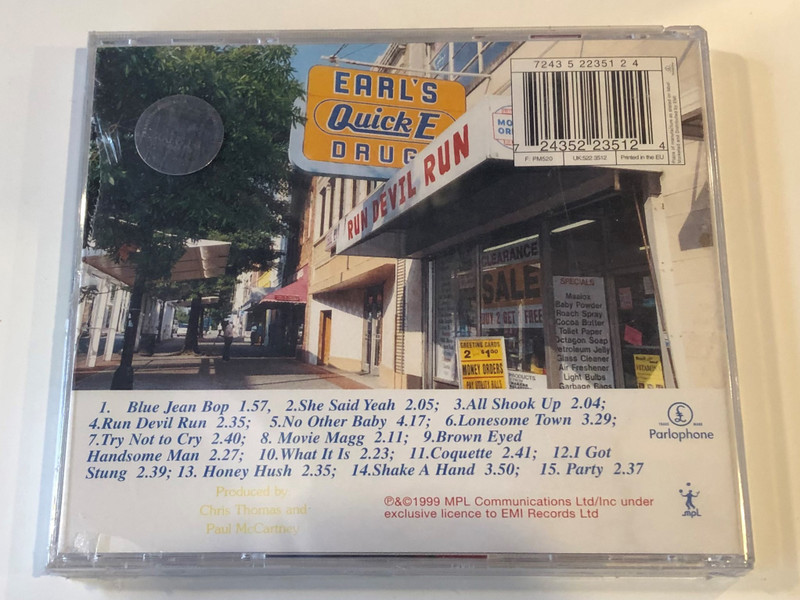 EARL'S
Quick E
DRUG
RUN DEVIL RUN
MO
OR
7243 5 22351 2 4
7 24352 23512 4
F: PM520 UK:522 3512 Printed in the EU
CLEARANCE
SALE
BUY 2 GET 1 FREE
SPECIALS
Maalox
Baby Powder
Roach Spray
Cocoa Butter
Toilet Paper
Octagon Soap
Petroleum Jelly
Glass Cleaner
Air Freshener
Light Bulbs
Garbage Bags
GREETING CARDS
2 $1.00
MONEY ORDERS
PAY UTILITY BILLS
PRODUCTS
1. Blue Jean Bop 1.57, 2.She Said Yeah 2.05; 3.All Shook Up 2.04;
4.Run Devil Run 2.35; 5.No Other Baby 4.17; 6.Lonesome Town 3.29;
7.Try Not to Cry 2.40; 8. Movie Magg 2.11; 9.Brown Eyed
Handsome Man 2.27; 10.What It Is 2.23; 11.Coquette 2.41; 12.I Got
Stung 2.39; 13. Honey Hush 2.35; 14.Shake A Hand 3.50; 15. Party 2.37
£
Parlophone
Produced by:
Chris Thomas and
Paul McCartney
℗&©1999 MPL Communications Ltd/Inc under
exclusive licence to EMI Records Ltd
mpl